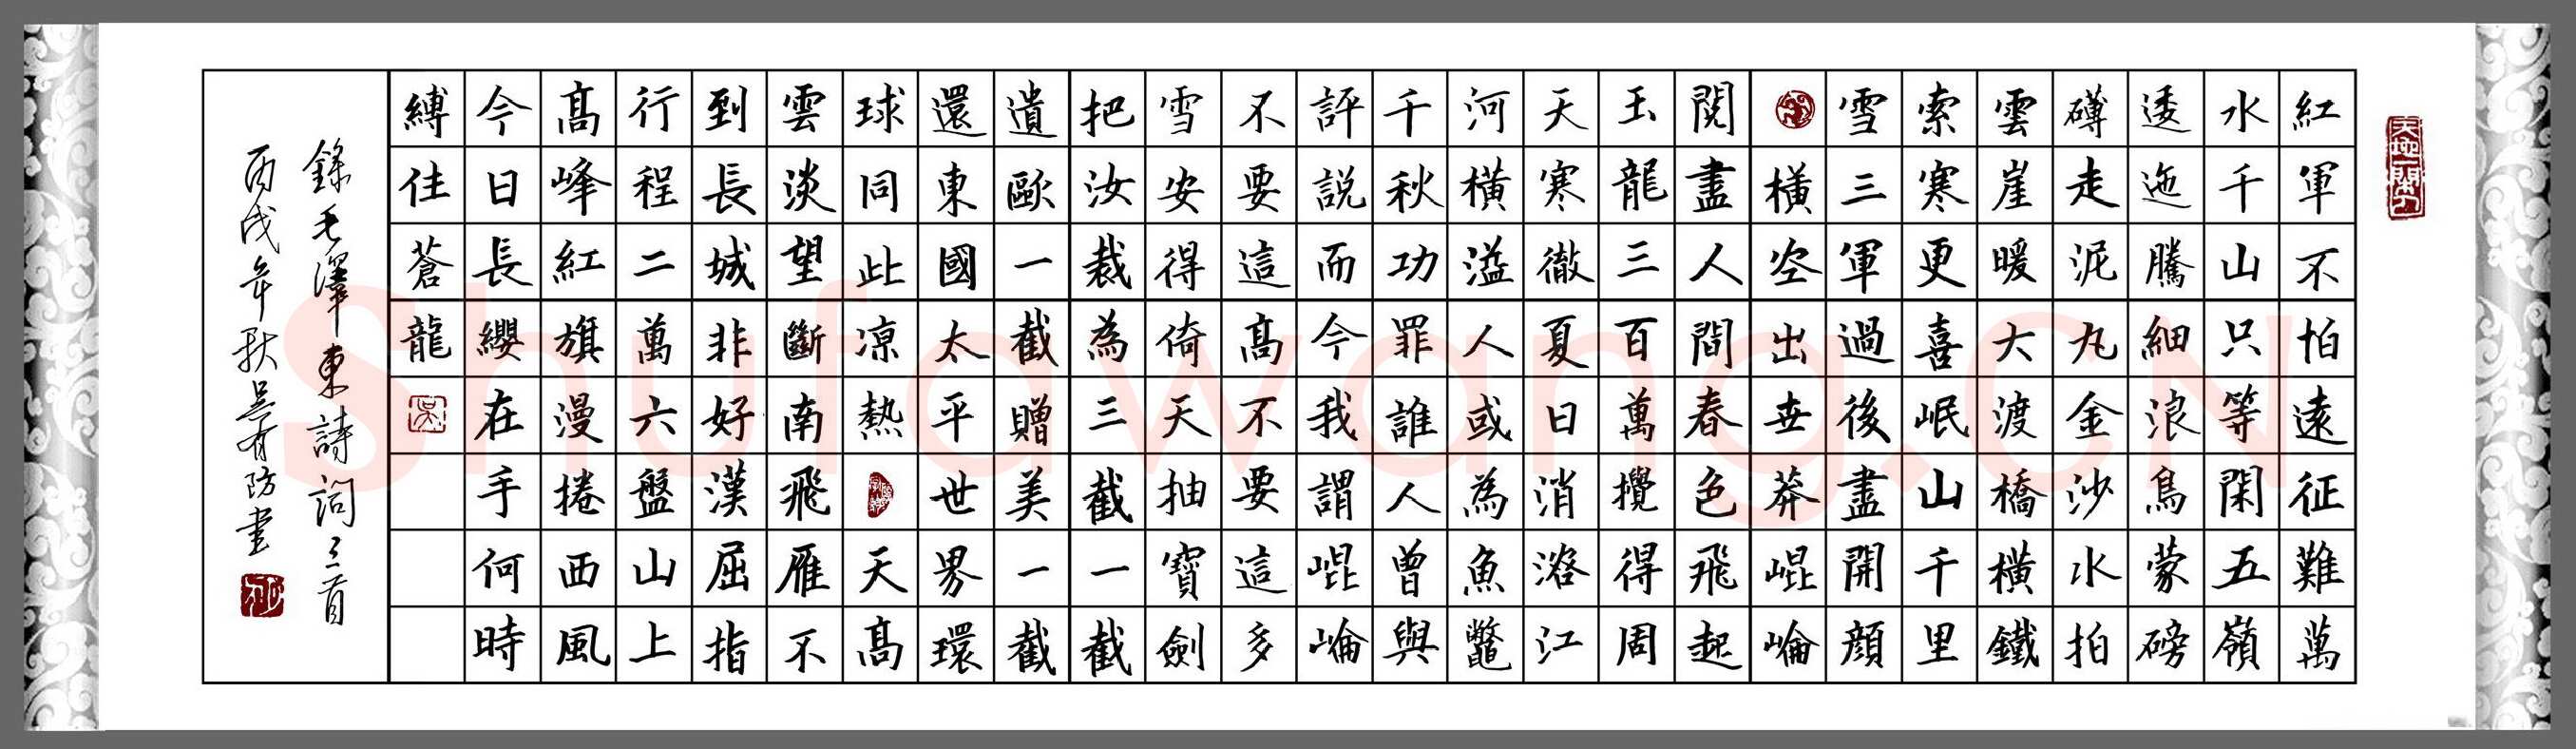 紅軍不怕遠征難萬
水千山只等閑五嶺
逶迤騰細浪烏蒙磅
礴走泥丸金沙水拍
雲崖暖大渡橋橫鐵
索寒更喜岷山千里
雪三軍過後盡開顏
橫空出世莽崐崘
閱盡人間春色飛起
玉龍三百萬攪得周
天寒徹夏日消溶江
河橫溢人或為魚鼈
千秋功罪誰人曾與
評說而今我謂崐崘
不要這高不要這多
雪安得倚天抽寶劍
把汝裁為三截一截
遺歐一截贈美一截
還東國太平世界環
球同此涼熱天高
雲淡望斷南飛雁不
到長城非好漢屈指
行程二萬六盤山上
高峰紅旗漫捲西風
今日長纓在手何時
縛住蒼龍
錄毛澤東詩詞三首
丙戌年秋吳有防書
Shufawang.CN